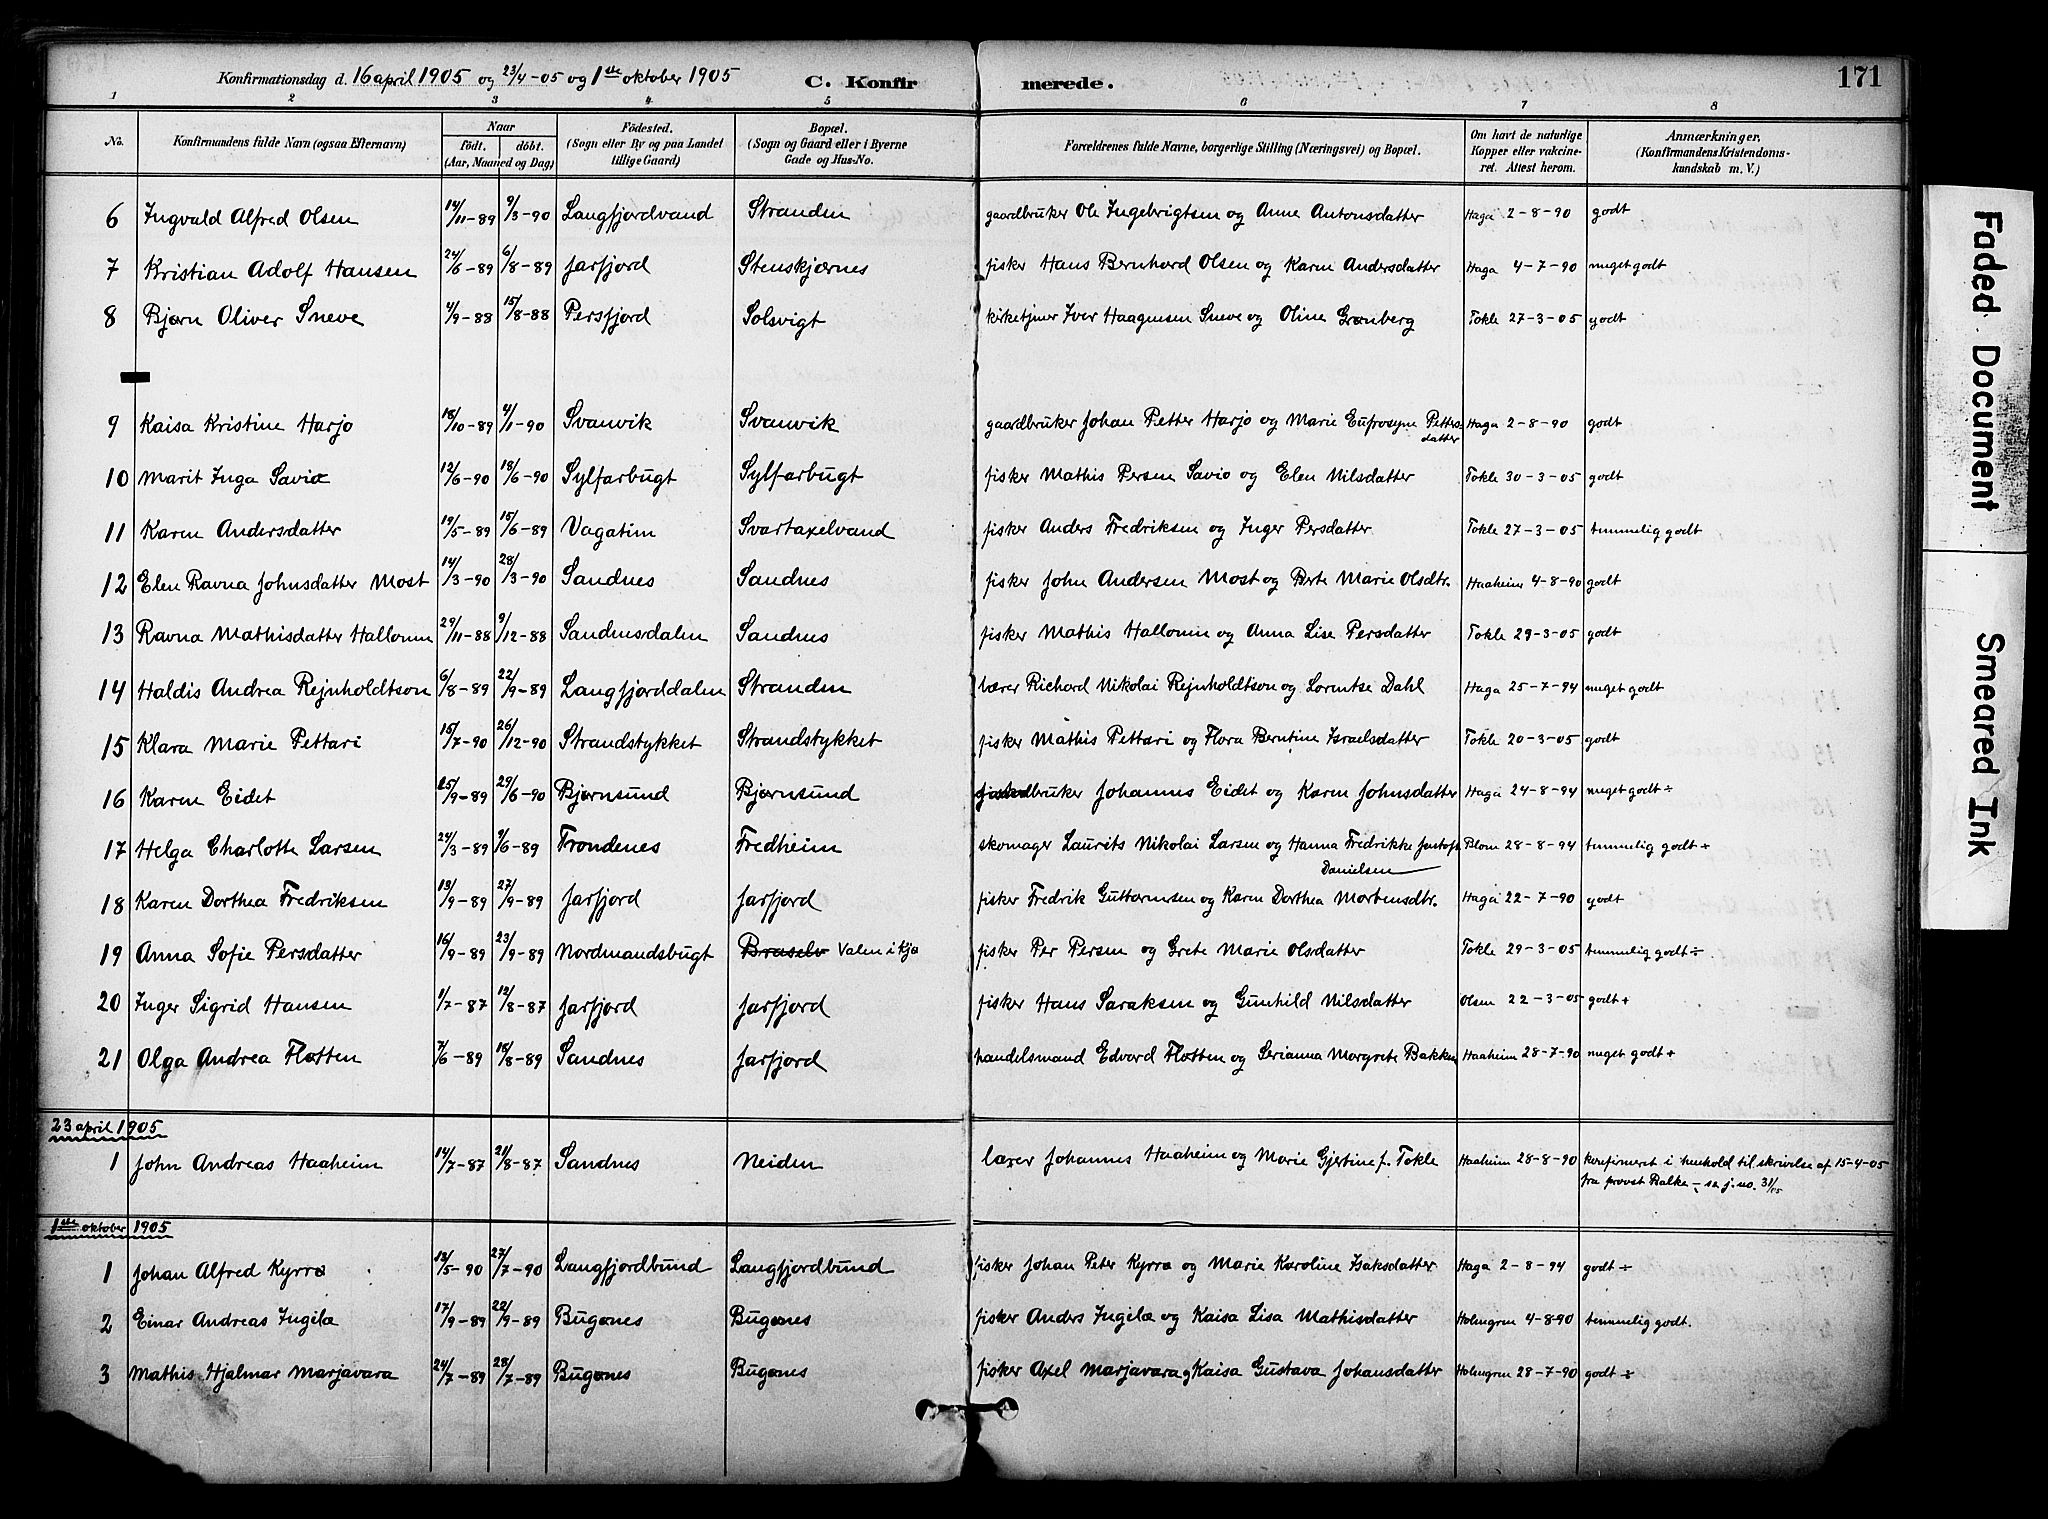 Konfirmationsdag d. 16 april 1905 og 23/4-05 og 1ste oktober 1905 C. Konfirmerede. 171
1 2 3 4 5 6 7 8
No. Konfirmandens fulde Navn (ogsaa Efternavn) Naar födt. döbt. (Aar, Maaned og Dag) Födested. (Sogn eller By og paa Landet tillige Gaard) Bopæl. (Sogn og Gaard eller i Byerne Gade og Hus-No. Forældrenes fulde Navne, borgerlige Stilling (Næringsvei) og Bopæl. Om havt de naturlige Kopper eller vakcineret. Attest herom. Anmærkninger, (Konfirmandens Kristendomskundskab m. V.)
6 Ingvald Alfred Olsen 14/11-89 9/3-90 Langfjordvand Stranden gaardbruker Ole Ingebrigtsen og Anne Antonsdatter Haga 2-8-90 godt
7 Kristian Adolf Hansen 24/6-89 6/8-89 Jarfjord Stenskjærnes fisker Hans Bernhard Olsen og Karen Andersdatter Haga 4-7-90 meget godt
8 Bjørn Oliver Sneve 4/9-88 15/8-88 Persfjord Solsvigt kirketjener Iver Haagensen Sneve og Oline Grønberg Tokle 27-3-05 godt
9 Kaisa Kristine Harjo 18/10-89 4/1-90 Svanvik Svanvik gaardbruker Johan Petter Harjo og Marie Eufrosyne Pettersdatter Haga 2-8-90 godt
10 Marit Inga Savio 12/6-90 18/6-90 Sylfarbugt Sylfarbugt fisker Mathis Persen Savio og Elen Nilsdatter Tokle 30-3-05 godt
11 Karen Andersdatter 19/5-89 15/6-89 Vagatim Svartaxelvand fisker Anders Fredriksen og Inger Persdatter Tokle 27-3-05 temmelig godt
12 Elen Ravna Johnsdatter Most 14/3-90 28/3-90 Sandnes Sandnes fisker John Andersen Most og Berte Marie Olsdtr. Haaheim 4-8-90 godt
13 Ravna Mathisdatter Hallonen 29/11-88 9/12-88 Sandnesdalen Sandnes fisker Mathis Hallonen og Anna Lise Persdatter Tokle 29-3-05 godt
14 Haldis Andrea Rejnholdtson 6/8-89 22/9-89 Langfjorddalen Stranden lærer Richard Nikolai Rejnholdtson og Lorentse Dahl Haga 25-7-94 meget godt
15 Klara Marie Pettari 15/7-90 26/12-90 Strandstykket Strandstykket fisker Mathis Pettari og Flora Berntine Israelsdatter Tokle 20-3-05 godt
16 Karen Eidet 25/9-89 29/6-90 Bjørnsund Bjørnsund bruker Johannes Eidet og Karen Johnsdatter Haga 24-8-94 meget godt ÷
17 Helga Charlotte Larsen 24/3-89 9/6-89 Trondenes Fredheim skomager Laurits Nikolai Larsen og Hanna Fredrikke Danielsen Blom 28-8-94 temmelig godt +
18 Karen Dorthea Fredriksen 13/9-89 27/9-89 Jarfjord Jarfjord fisker Fredrik Guttormsen og Karen Dorthea Mortensdtr. Haga 22-7-90 godt
19 Anna Sofie Persdatter 16/9-89 23/9-89 Nordmandsbugt Braselv Valen i Kjø fisker Per Persen og Grete Marie Olsdatter Tokle 29-3-05 temmelig godt ÷
20 Inger Sigrid Hansen 1/7-87 12/8-87 Jarfjord Jarfjord fisker Hans Saraksen og Gunhild Nilsdatter Olsen 22-3-05 godt +
21 Olga Andrea Flotten 7/6-89 18/8-89 Sandnes Jarfjord handelsmand Edvard Flotten og Serianna Margrete Bakken Haaheim 28-7-90 meget godt +
23 april 1905
1 John Andreas Haaheim 14/7-87 21/8-87 Sandnes Neiden lærer Johannes Haaheim og Marie Gjertine f. Tokle Haaheim 28-8-90 konfirmeret i henhold til skrivelse af 15-4-05
fra provst Balke – se j. no. 31/05
1ste oktober 1905
1 Johan Alfred Kyrrø 13/5-90 27/7-90 Langfjordbund Langfjordbund fisker Johan Peter Kyrrø og Marie Karoline Isaksdatter Haga 2-8-94 godt ÷
2 Einar Andreas Ingilæ 17/9-89 22/9-89 Bugønes Bugønes fisker Anders Ingilæ og Kaisa Lisa Mathisdatter Holmgren 4-8-90 temmelig godt.
3 Mathis Hjalmar Marjavara 24/7-89 28/7-89 Bugønes Bugønes fisker Axel Marjavara og Kaisa Gustava Johansdatter Holmgren 28-7-90 godt ÷
Faded Document
Smeared Ink